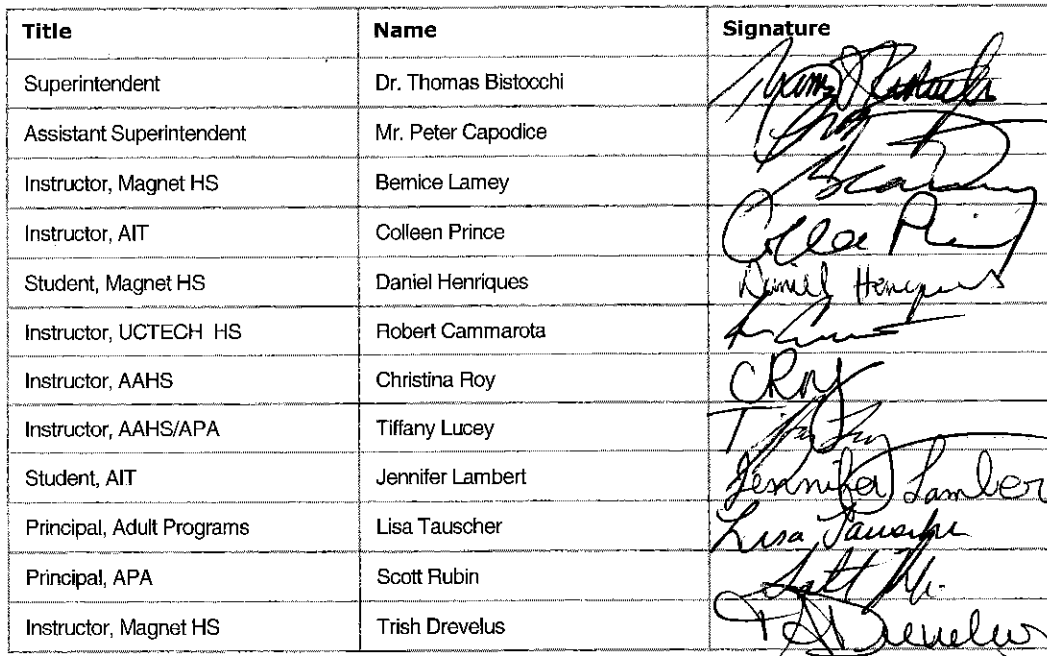 Title Name Signature
Superintendent Dr. Thomas Bistocchi
Assistant Superintendent Mr. Peter Capodice
Instructor, Magnet HS Bernice Lamey
Instructor, AIT Colleen Prince
Student, Magnet HS Daniel Henriques Daniel Henriques
Instructor, UCTECH HS Robert Cammarota
Instructor, AAHS Christina Roy CRoy
Instructor, AAHS/APA Tiffany Lucey
Student, AIT Jennifer Lambert Jennifer Lamber
Principal, Adult Programs Lisa Tauscher Lisa Tauscher
Principal, APA Scott Rubin
Instructor, Magnet HS Trish Drevelus T Drevelus